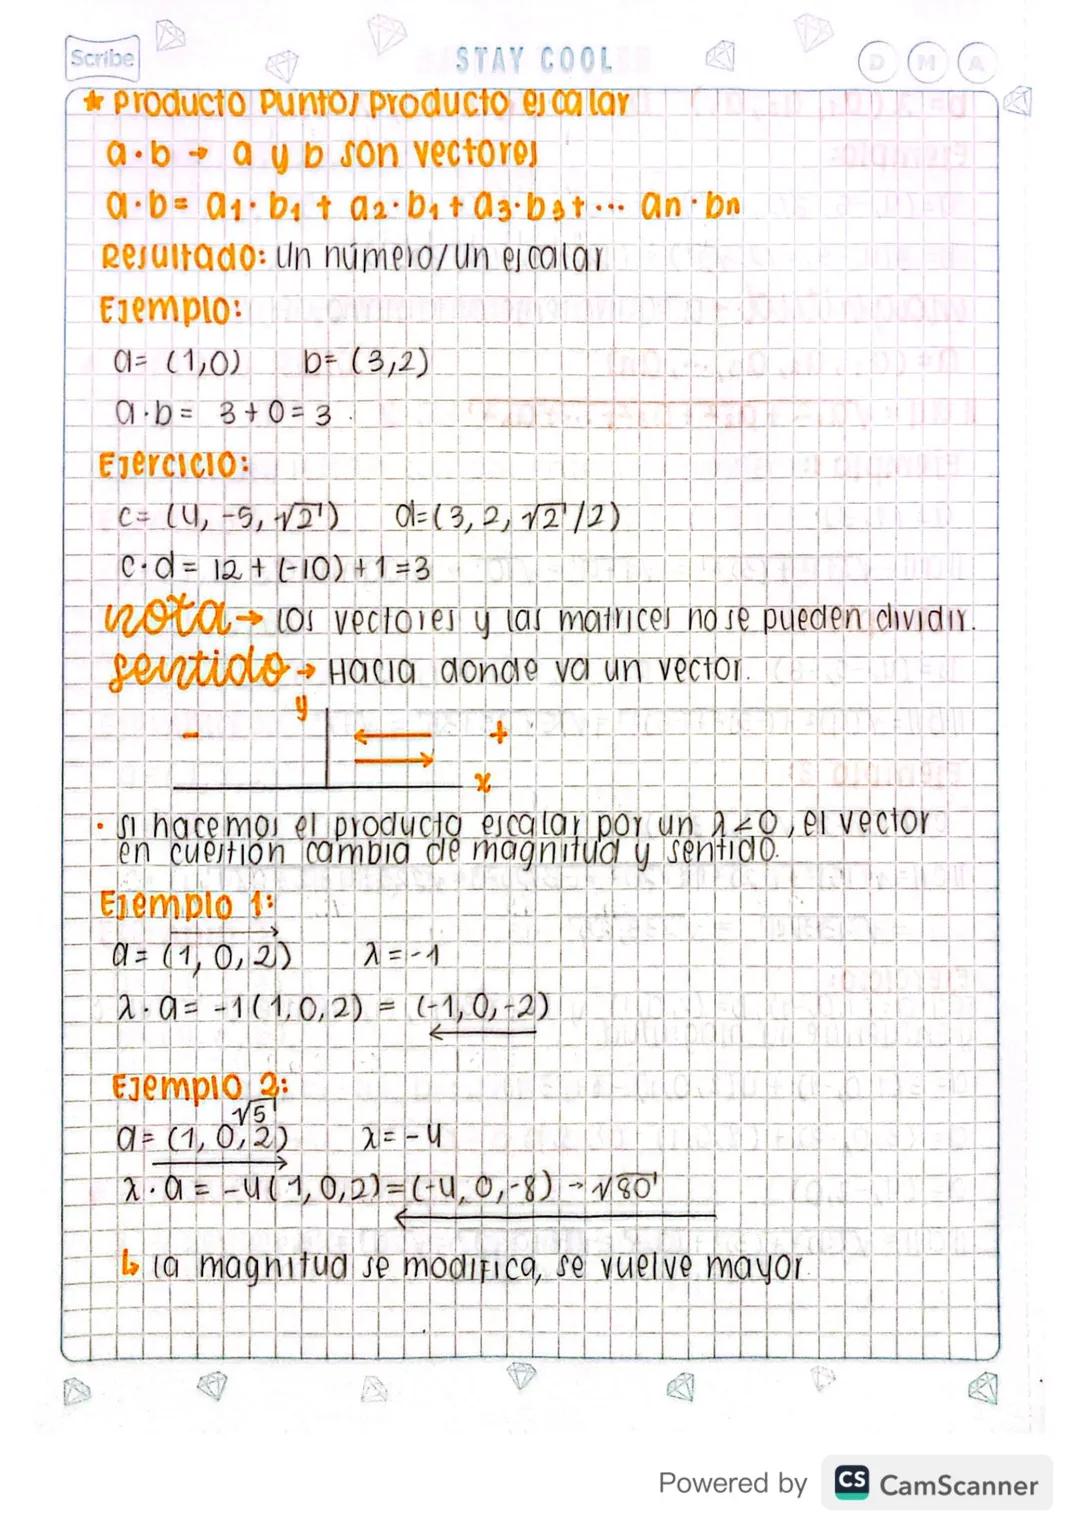 Scribe
STAY COOL
D M A
* Producto Punto/ producto escalar
a·b → a y b son vectores
a·b = a1·b1 + a2·b1 + a3·b3 + ... an·bn
Resultado: Un número/Un escalar
Ejemplo:
a= (1,0) b= (3,2)
a·b = 3+0=3.
Ejercicio:
c= (4, -5, √2) d=(3, 2, √2/2)
c·d = 12 + (-10) + 1 = 3
nota → Los vectores y las matrices no se pueden dividir.
sentido → Hacia donde va un vector.
y
- ← +
→
x
· Si hacemos el producto escalar por un λ<0, el vector
en cuestión cambia de magnitud y sentido.
Ejemplo 1:
a = (1, 0, 2) λ = -1
λ·a = -1(1,0,2) = (-1,0,-2)
Ejemplo 2:
√5
a= (1, 0, 2) λ= -4
λ·a = -4(1,0,2)=(-4,0,-8) → √80
↳ La magnitud se modifica, se vuelve mayor.
Powered by CS CamScanner